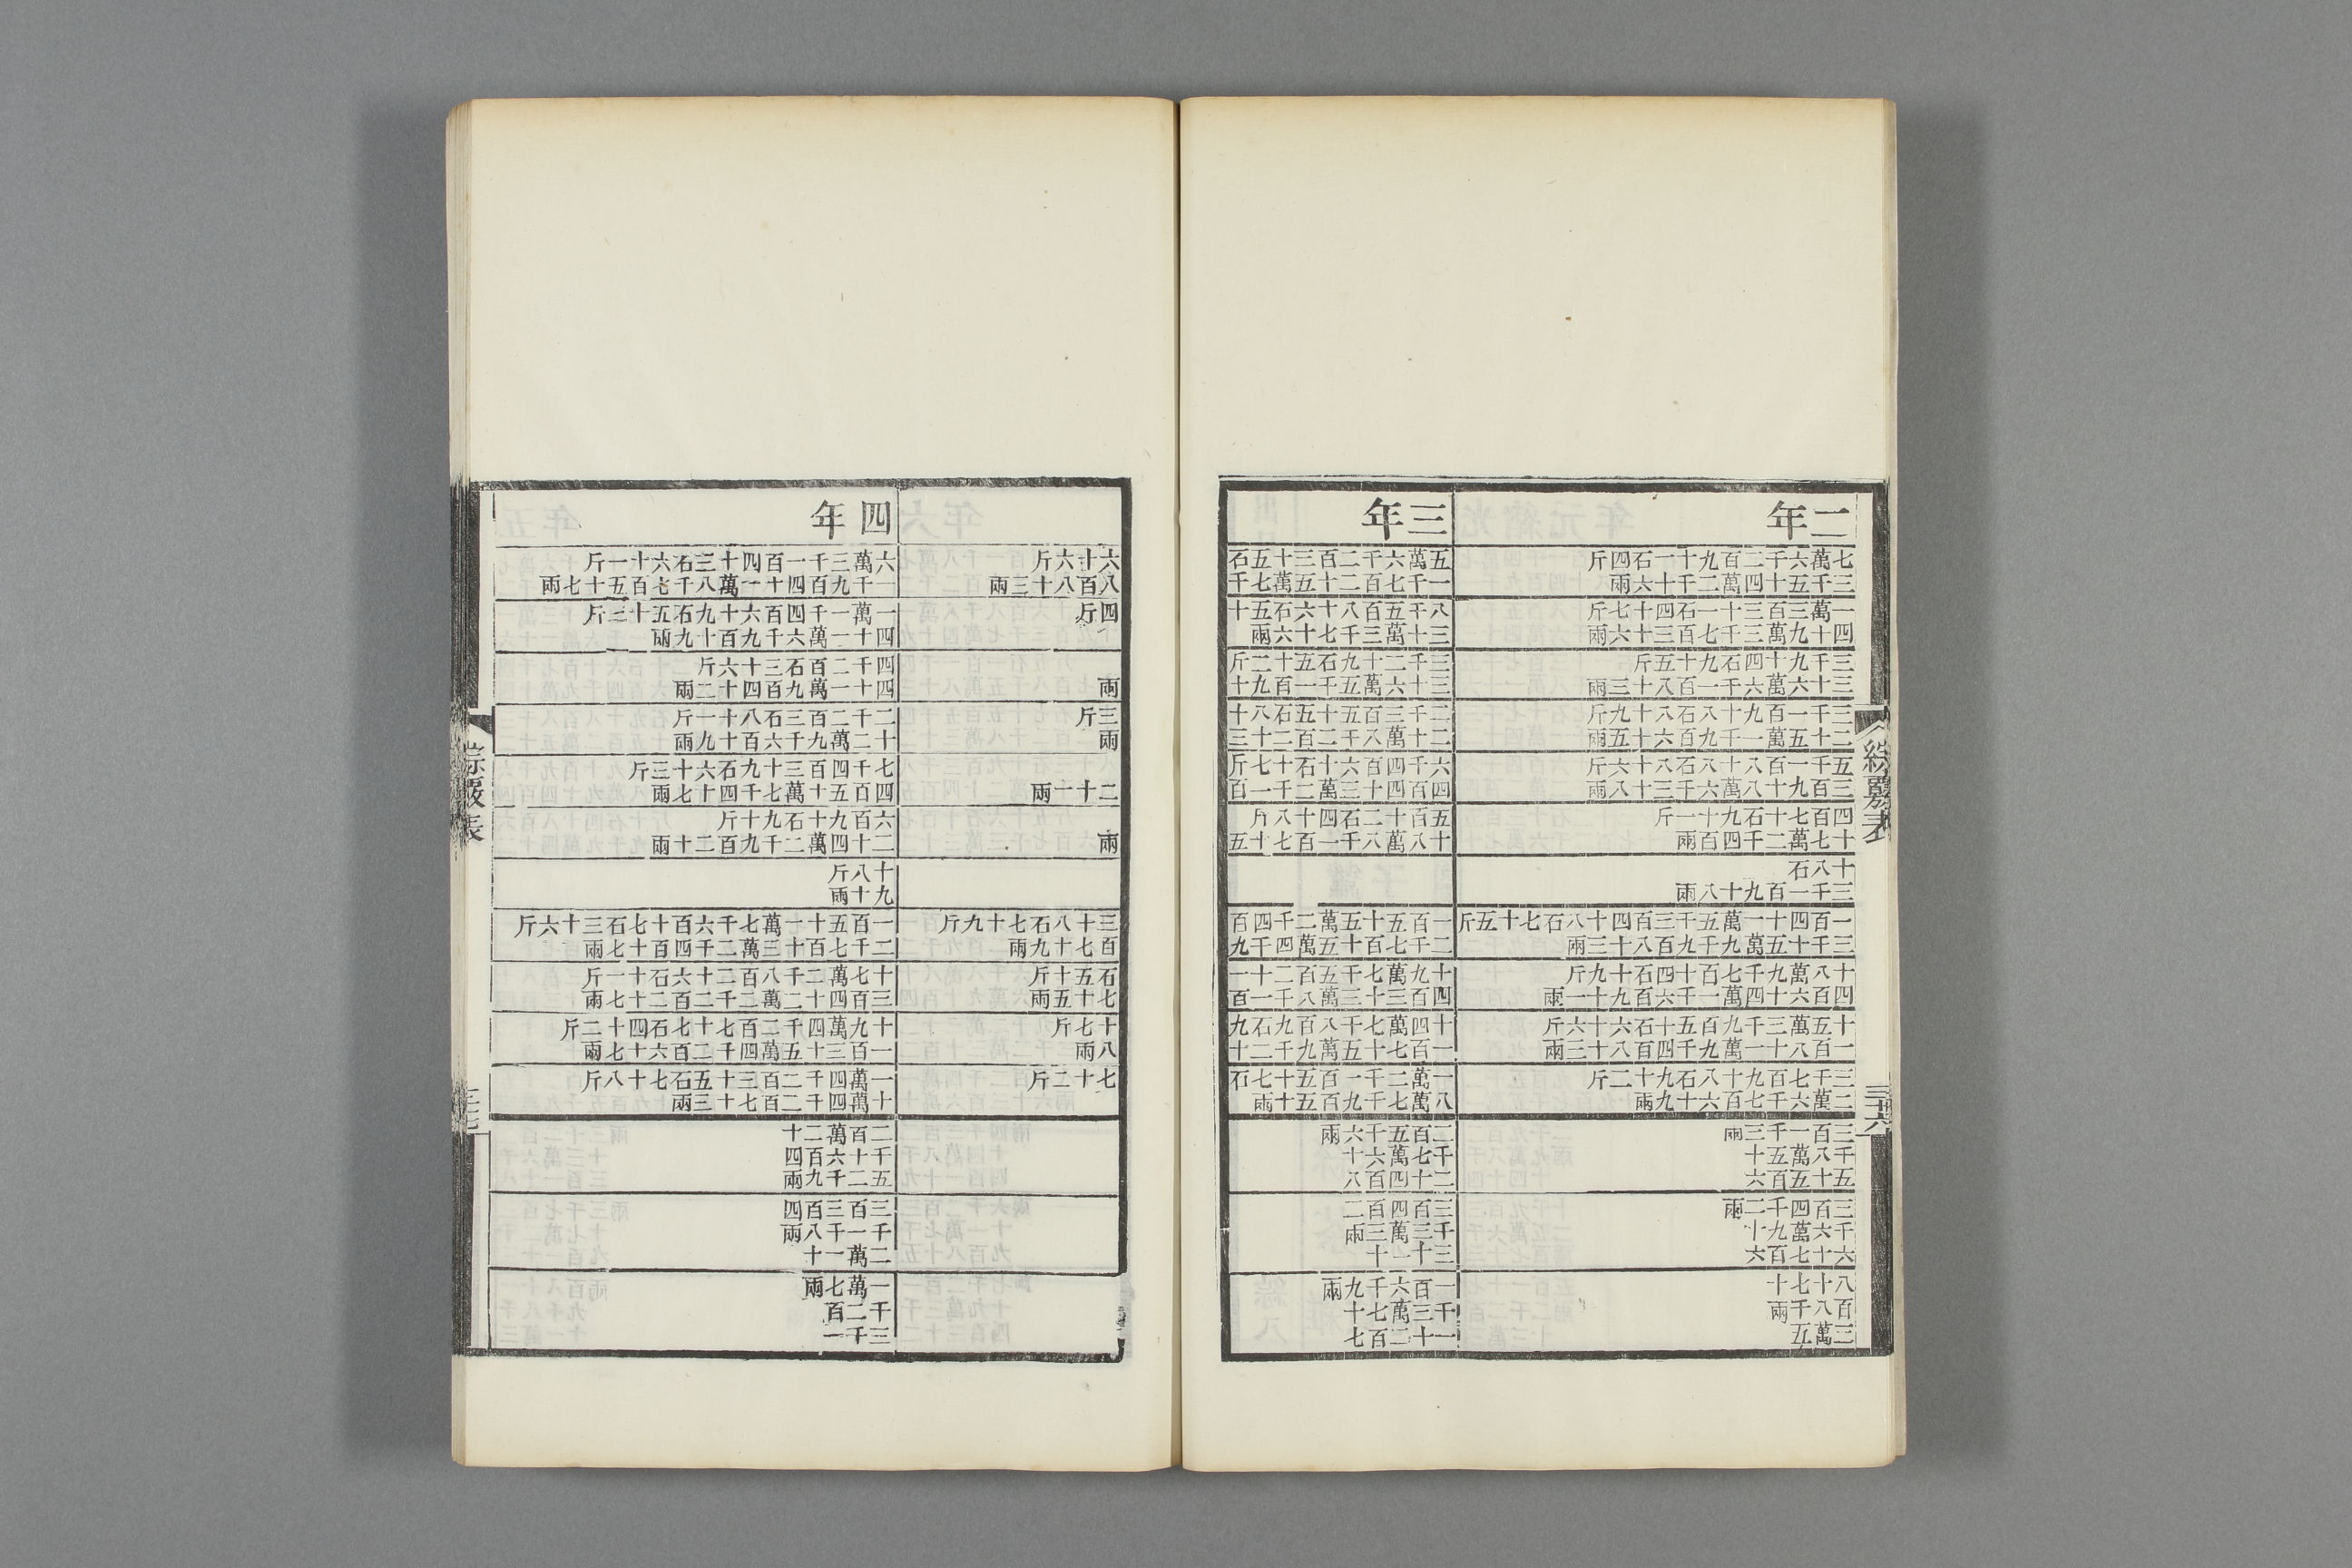 二年
七萬六千二百九十一石四斤
三千五十四萬二千十六兩
一萬三百三十一石四十七斤
四十九萬三千七百三十六兩
三千九十四石九十五斤
三十六萬六千一百八十三兩
二千一百九十八石八十九斤
二十五萬一千九百六十五兩
五千一百八十八石八十六斤
三百九十八萬六千三十八兩
四百七十石九十一斤
十七萬二千四百兩
十八石
三千一百九十八兩
一百四十一萬五千三百四十八石七十五斤
三千十五萬九千九百八十三兩
十八萬九千七百十四石十九斤
四百六十四萬一千六百九十一兩
十五萬三千九百五十石六十六斤
一百八十一萬九千四百八十三兩
三千七百九十八石九十二斤
二萬六千七百六十九兩
三千五
百八十
一萬五
千五百
三十六
兩
三千六
百六十
四萬七
千九百
二十六
兩
八百三
十八萬
七千五
十兩
三年
五萬六千二百三十五石
一千七百二十五萬七千
八千五百八十六石五十
三十萬三千七十六兩
三千二十九石五十二斤
三十六萬五千一百九十
二千三百五十五石八十
二十萬八千二百二十三
六千四百六十石十七斤
四百四十三萬二千一百
五百十二石四十八斤
十八萬八千一百七十五
一百五十五萬二千四百
二千七百十五萬四千九
十九萬七千五百二十一
四百三十三萬八千一百
十四萬七千八百九石九
一百七十五萬九千二十
一萬二千一百五十七石
八萬七千九百五十兩
二千二
百七十
五萬四
千六百
六十八
兩
三千三
百三十
四萬一
百三十
二兩
一千一
百三十
六萬二
千七百
九十七
兩
綜覈表
三十六
六十六斤
八百八十三兩
四斤
兩
三斤
兩
二十一兩
兩
三十八石七十九斤
百七十九兩
石五十斤
七十五兩
十七斤
八兩
七十二斤
四年
六萬三千一百四十三石六十一斤
一千九百四十一萬八千七百五十七兩
一萬一千四百六十九石五十三斤
四十一萬六千九百十九兩
四千二百石三十六斤
四十一萬九百四十二兩
二千二百三石八十一斤
十二萬九千六百十九兩
七千四百三十九石六十三斤
四百五十萬七千四十七兩
六百九十石九十斤
二十四萬二千九百二十兩
十八斤
九十兩
一百五十一萬七千六百十七石三十六斤
二千七百十三萬二千四百十七兩
十七萬二千八百二十六石十一斤
三百四十二萬二千二百二十七兩
十九萬四千二百七十七石四十二斤
一百三十五萬四千二百六十七兩
一萬四千二百三十五石七十八斤
十萬四千二百七十三兩
二千五
百十二
萬六千
二百九
十四兩
三千二
百一萬
三千一
百八十
四兩
一千三
萬二千
七百一
兩
綜覈表